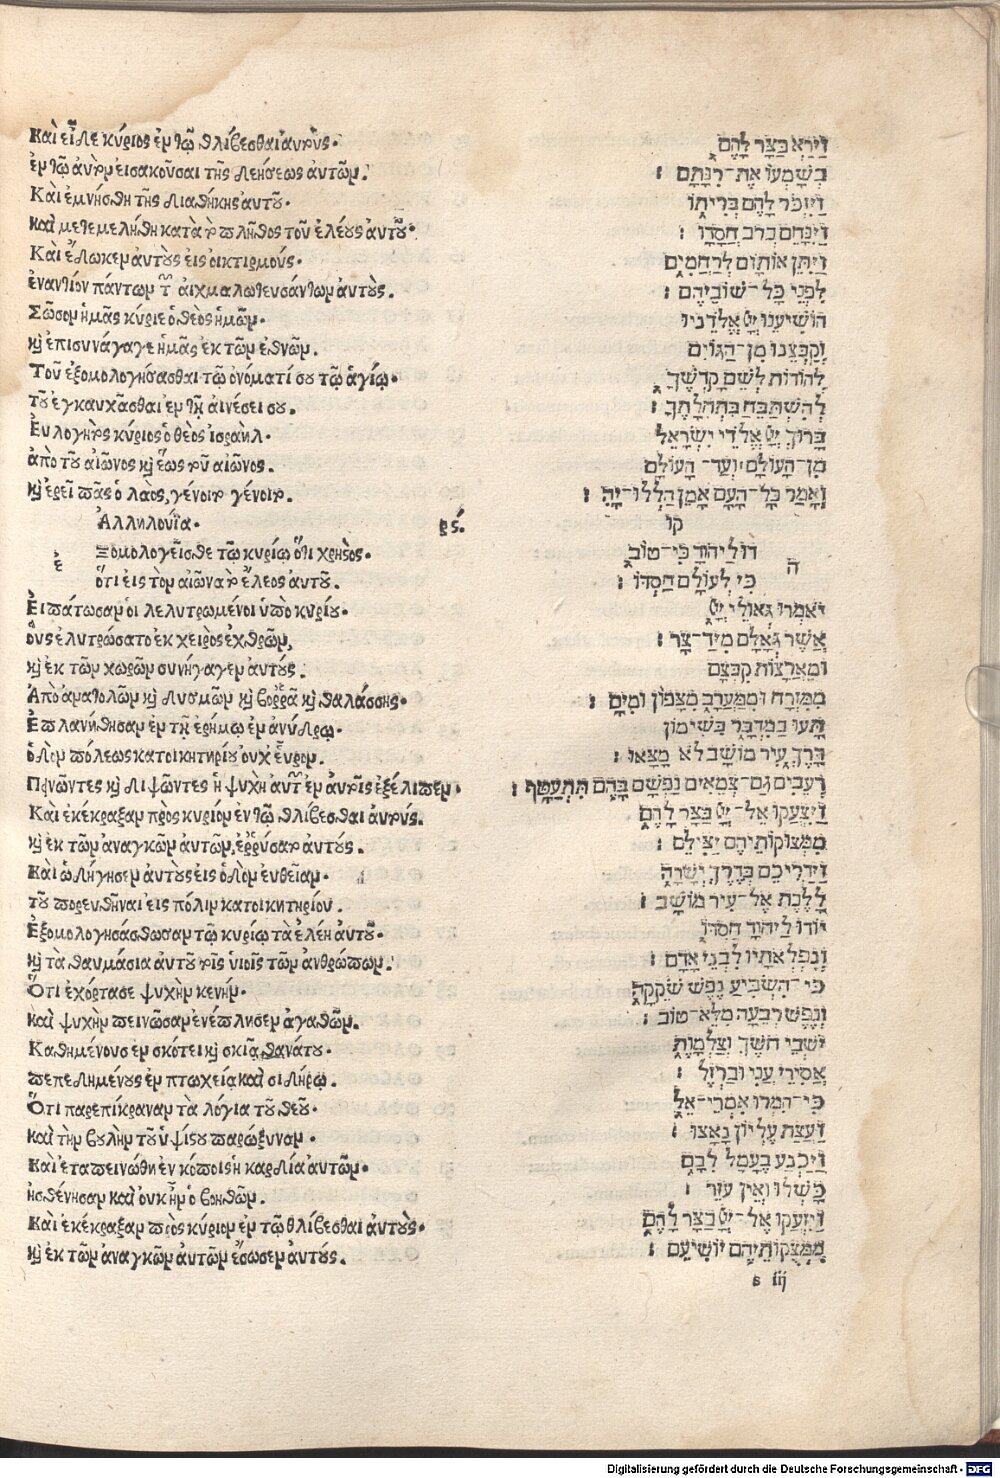 Καὶ εἶδε κύριος ἐν τῷ θλίβεσθαι ἀυτούς.
ἐν τῷ ἀυτὸν ἐισακοῦσαι τῆς δεήσεως ἀυτῶν.
Καὶ ἐμνήσθη τῆς διαθήκης ἀυτοῦ.
καὶ μετεμελήθη κατὰ τὸ πλῆθος τοῦ ἐλέους ἀυτοῦ.
Καὶ ἔδωκεν ἀυτοὺς εἰς οἰκτιρμούς.
ἐναντίον πάντων τῶν αἰχμαλωτευσάντων ἀυτούς.
Σῶσον ἡμᾶς κύριε ὁ θεὸς ἡμῶν.
καὶ ἐπισυνάγαγε ἡμᾶς ἐκ τῶν ἐθνῶν.
Τοῦ ἐξομολογήσασθαι τῷ ὀνόματί σου τῷ ἁγίῳ.
τοῦ ἐγκαυχᾶσθαι ἐν τῇ αἰνέσει σου.
Ευλογητὸς κύριος ὁ θεὸς ἰσραὴλ.
ἀπὸ τοῦ αἰῶνος καὶ ἕως τοῦ αἰῶνος.
καὶ ἐρεῖ πᾶς ὁ λαὸς, γένοιτο γένοιτο.
Ἀλληλούϊα. ρς.
ἐ Ξομολογεῖσθε τῷ κυρίῳ ὅτι χρηστὸς.
ὅτι εἰς τὸν αἰῶνα τὸ ἔλεος ἀυτοῦ.
Ἐιπάτωσαν οἱ λελυτρωμένοι ὑπὸ κυρίου.
οὓς ἐλυτρώσατο ἐκ χειρὸς ἐχθρῶν,
καὶ ἐκ τῶν χωρῶν συνήγαγεν ἀυτούς.
Ἀπὸ ἀνατολῶν καὶ δυσμῶν καὶ βοῤῥᾶ καὶ θαλάσσης.
Ἐπλανήθησαν ἐν τῇ ἐρήμῳ ἐν ἀνύδρῳ.
ὁδὸν πόλεως κατοικητηρίου ουχ εὗρον.
Πεινῶντες καὶ διψῶντες ἡ ψυχὴ ἀυτῶν ἐν ἀυτοῖς ἐξέλιπεν.
Καὶ ἐκέκραξαν πρὸς κύριον ἐν τῷ θλίβεσθαι ἀυτούς.
καὶ ἐκ τῶν ἀναγκῶν ἀυτῶν, ἐῤῥύσατο ἀυτούς.
Καὶ ὡδήγησεν ἀυτοὺς εἰς ὁδὸν ἐυθεῖαν.
τοῦ πορευθῆναι εἰς πόλιν κατοικητηρίου.
Ἐξομολογησάσθωσαν τῷ κυρίῳ τὰ ἐλέη ἀυτοῦ.
καὶ τὰ θαυμάσια ἀυτοῦ τοῖς ὑιοῖς τῶν ἀνθρώπων.
Ὅτι ἐχόρτασε ψυχὴν κενήν.
καὶ ψυχὴν πεινῶσαν ἐνέπλησεν ἀγαθῶν.
Καθημένους ἐν σκότει καὶ σκιᾷ θανάτου.
πεπεδημένους ἐν πτωχείᾳ καὶ σιδήρῳ.
Ὅτι παρεπίκραναν τὰ λόγια τοῦ θεοῦ.
καὶ τὴν βουλὴν τοῦ ὑψίστου παρώξυναν.
Καὶ ἐταπεινώθη ἐν κόποις ἡ καρδία ἀυτῶν.
ἠσθένησαν καὶ ουκ ἦν ὁ βοηθῶν.
Καὶ ἐκέκραξαν πρὸς κύριον ἐν τῷ θλίβεσθαι ἀυτοὺς.
καὶ ἐκ τῶν ἀναγκῶν ἀυτῶν ἔσωσεν ἀυτούς.
וַיַּרְא בַּצַּר לָהֶם
בְּשָׁמְעוֹ אֶת־רִנָּתָם ׃
וַיִּזְכֹּר לָהֶם בְּרִיתוֹ
וַיִּנָּחֵם כְּרֹב חֲסָדָו ׃
וַיִּתֵּן אוֹתָם לְרַחֲמִים
לִפְנֵי כָּל־שׁוֹבֵיהֶם ׃
הוֹשִׁיעֵנוּ יְיָ אֱלֹדֵינוּ
וְקַבְּצֵנוּ מִן־הַגּוֹיִם
לְהוֹדוֹת לְשֵׁם קָדְשֶׁךָ
לְהִשְׁתַּבֵּחַ בִּתְהִלָּתֶךָ ׃
בָּרוּךְ יְיָ אֱלֹדֵי יִשְׂרָאֵל
מִן־הָעוֹלָם וְעַד־ הָעוֹלָם
וְאָמַר כָּל־הָעָם אָמֵן הַלְלוּ־יָהּ ׃
קו
ה דוּ לַיהוָד כִּי־טוֹב
כִּי לְעוֹלָם חַסְדּוֹ ׃
יֹאמְרוּ גְּאוּלֵי יְיָ
אֲשֶׁר גְּאָלָם מִיַּד־צָר ׃
וּמֵאֲרָצוֹת קִבְּצָם
מִמִּזְרָח וּמִמַּעֲרָב מִצָּפוֹן וּמִיָּם ׃
תָּעוּ בַמִּדְבָּר בִּשִׁימוֹן
דָּרֶךְ עִיר מוֹשָׁב לֹא מָצָאוּ ׃
רְעֵבִים גַּם־צְמֵאִים נַפְשָׁם בָּהֶם תִּתְעַטָּף ׃
וַיִּצְעֲקוּ אֶל־יְיָ בַּצַּר לָהֶם
מִמְּצוּקוֹתֵיהֶם יַצִּילֵם ׃
וַיַּדְרִיכֵם בְּדֶרֶךְ יְשָׁרָה
לָלֶכֶת אֶל־עִיר מוֹשָׁב ׃
יוֹדוּ לַיהוָד חַסְדּוֹ
וְנִפְלְאֹתָיו לִבְנֵי אָדָם ׃
כִּי־הִשְׂבִּיעַ נֶפֶשׁ שֹׁקֵקָה
וְנֶפֶשׁ רְעֵבָה מִלֵּא־טוֹב ׃
יֹשְׁבֵי חֹשֶׁךְ וְצַלְמָוֶת
אֲסִירֵי עֳנִי וּבַרְזֶל ׃
כִּי־הִמְרוּ אִמְרֵי־אֵל
וַעֲצַת עֶלְיוֹן נָאָצוּ ׃
וַיַּכְנַע בֶּעָמָל לִבָּם
כָּשְׁלוּ וְאֵין עֹזֵר ׃
וַיִּזְעֲקוּ אֶל־יְיָ בַּצַּר לָהֶם
מִמְּצֻקוֹתֵיהֶם יוֹשִׁיעֵם ׃
s iij
Digitalisierung gefördert durch die Deutsche Forschungsgemeinschaft - DFG